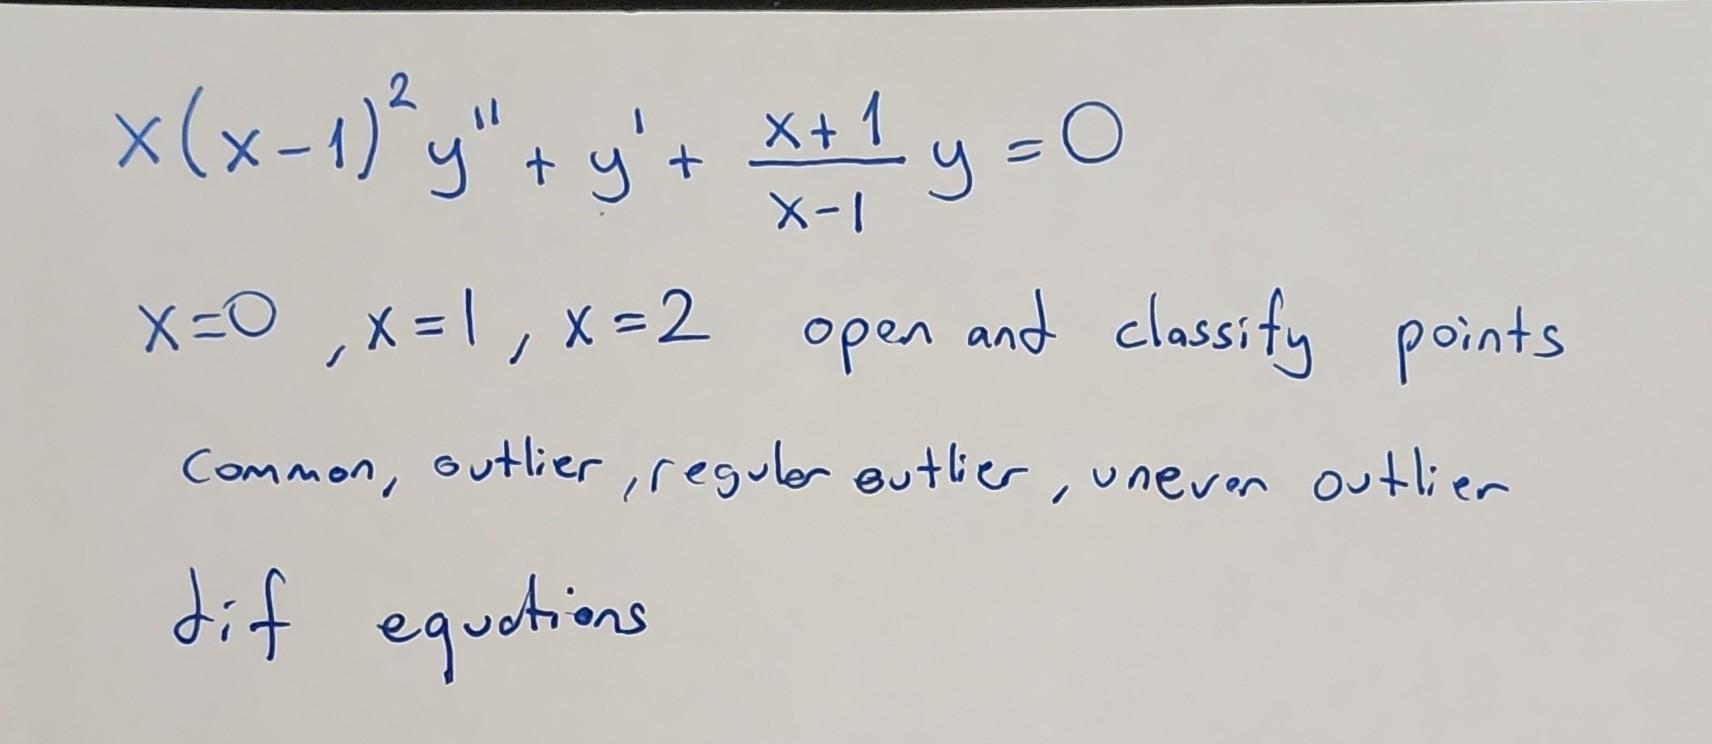 x(x-1)²y" + y' + \frac{x+1}{x-1} y = 0
x=0, x=1, x=2 open and classify points
common, outlier, regular outlier, uneven outlier
dif equations